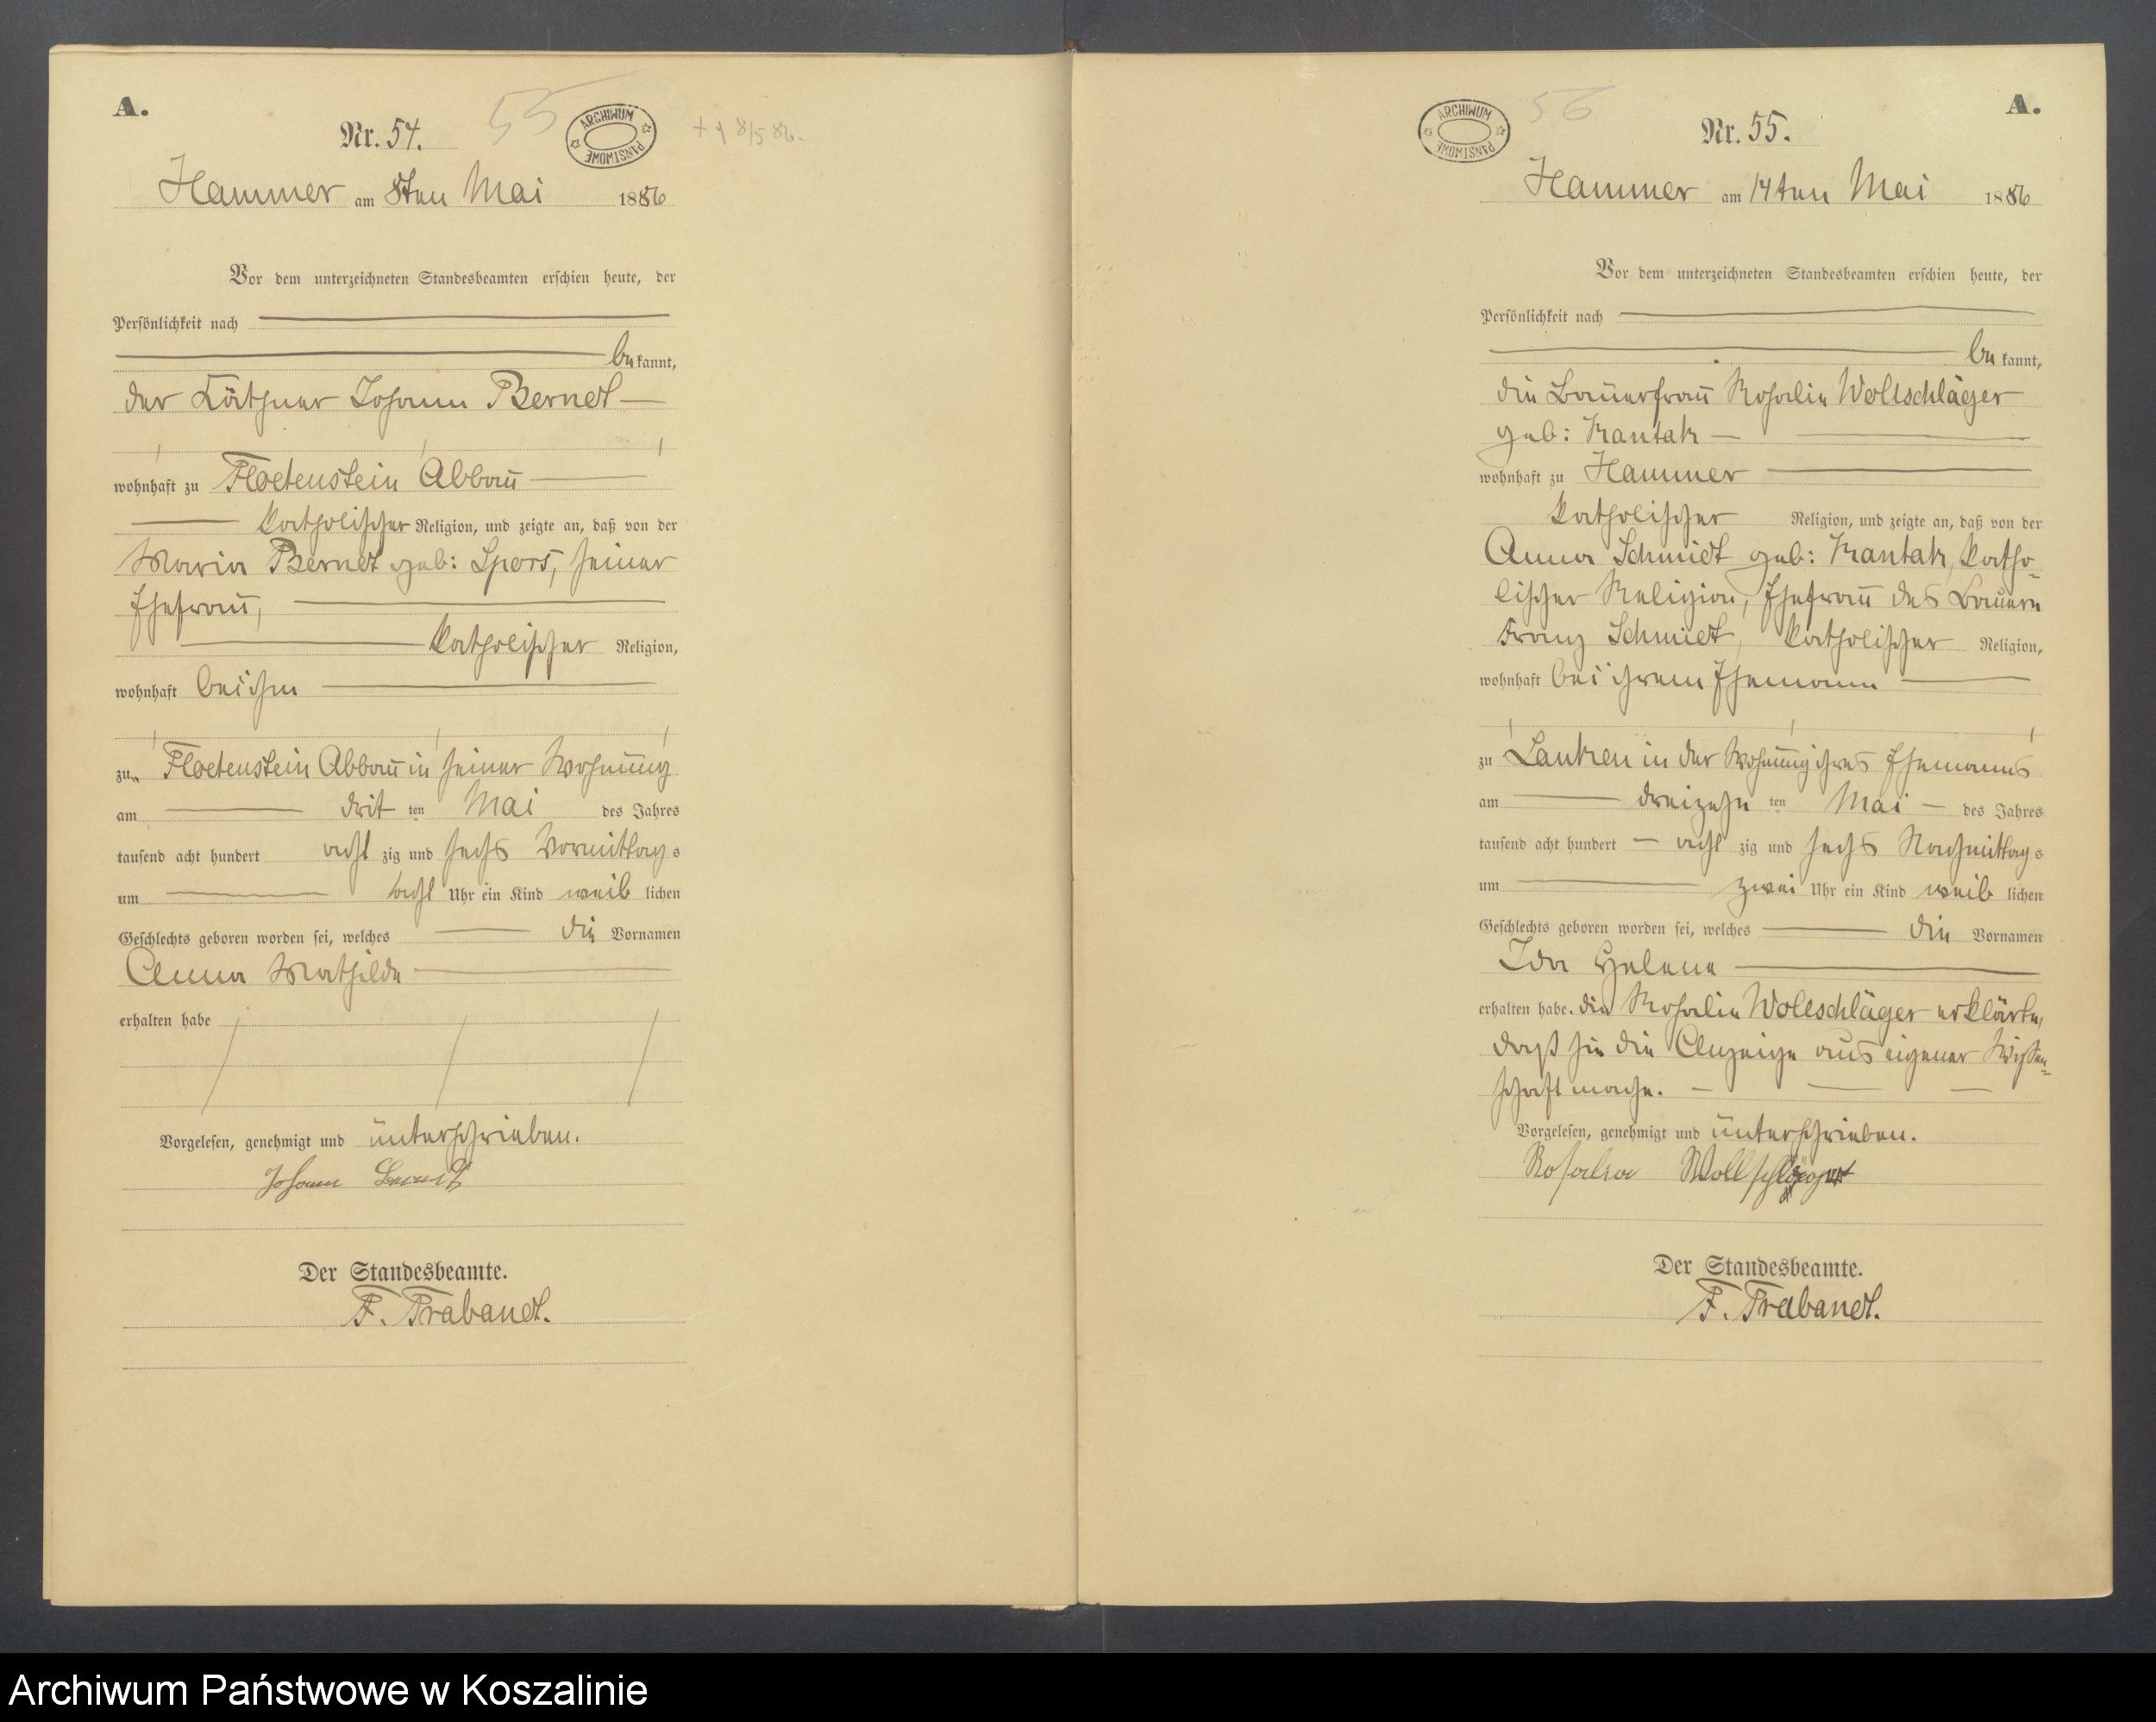 A.
Nr. 54.
55
ARCHIWUM PAŃSTWOWE
Hammer am 8ten Mai 1886
Vor dem unterzeichneten Standesbeamten erschien heute, der
Persönlichkeit nach
be kannt,
der Käthner Johann Berndt
wohnhaft zu Floetenstein Abbau
katholischer Religion, und zeigte an, daß von der
Maria Berndt geb: Spors, seiner
Ehefrau,
katholischer Religion,
wohnhaft bei ihm
zu Floetenstein Abbau in seiner Wohnung
am drit ten Mai des Jahres
tausend acht hundert acht zig und sechs Vormittags
um acht Uhr ein Kind weib lichen
Geschlechts geboren worden sei, welches die Vornamen
Anna Mathilde
erhalten habe
Vorgelesen, genehmigt und unterschrieben.
Johann
Der Standesbeamte.
F. Trabandt.
A.
Nr. 55.
56
ARCHIWUM PAŃSTWOWE
Hammer am 14ten Mai 1886
Vor dem unterzeichneten Standesbeamten erschien heute, der
Persönlichkeit nach
be kannt,
die Bauerfrau Rosalie Wollschläger
geb: Kantak
wohnhaft zu Hammer
katholischer Religion, und zeigte an, daß von der
Anna Schmidt geb: Kantak, katho-
lischer Religion, Ehefrau des Bauern
Franz Schmidt, katholischer Religion,
wohnhaft bei ihrem Ehemann
zu Lanken in der Wohnung ihres Ehemannes
am dreizehn ten Mai des Jahres
tausend acht hundert acht zig und sechs Nachmittags
um zwei Uhr ein Kind weib lichen
Geschlechts geboren worden sei, welches die Vornamen
Ida Helene
erhalten habe. die Rosalie Wollschläger erklärte,
daß sie die Anzeige aus eigener Wissen-
schaft mache.
Vorgelesen, genehmigt und unterschrieben.
Rosalia Wollschläger
Der Standesbeamte.
F. Trabandt.
Archiwum Państwowe w Koszalinie